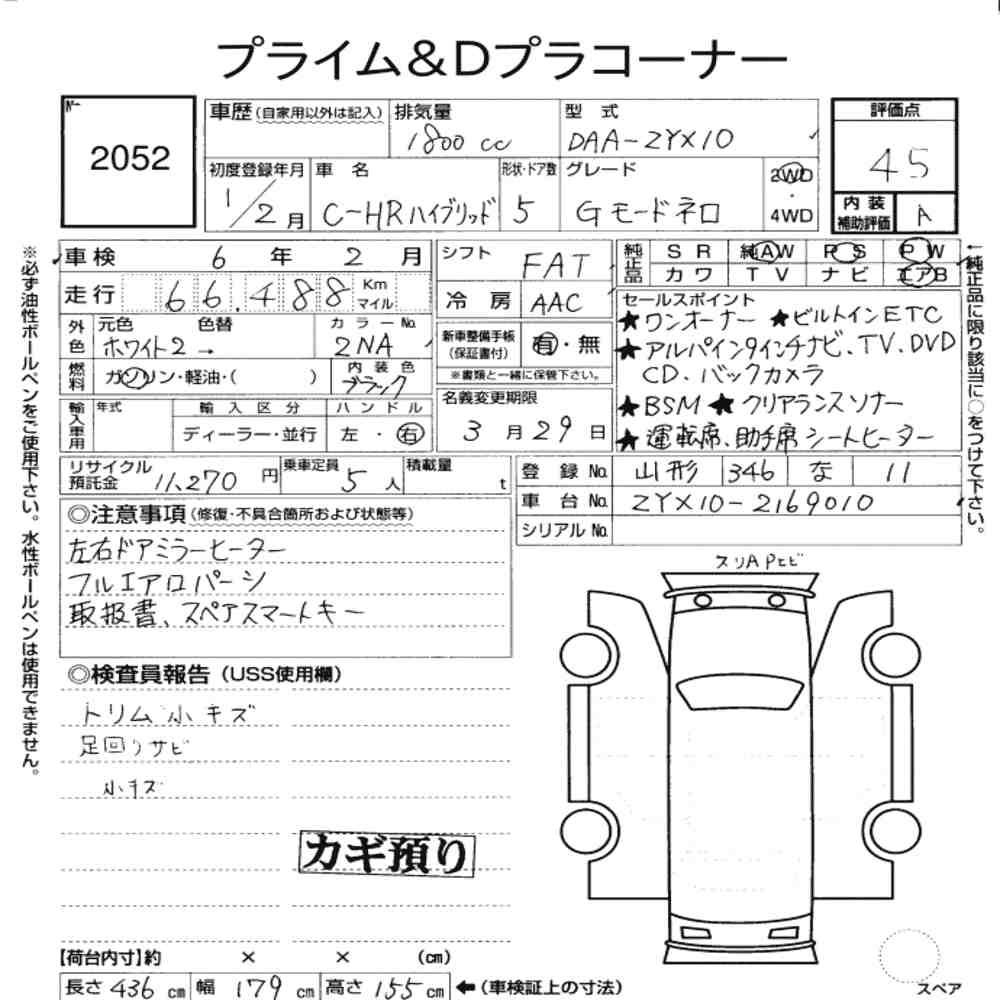 プライム&Dプラコーナー
No. 2052
車歴(自家用以外は記入)
排気量 1800cc
型式 DAA-ZYX10
評価点 45
初度登録年月 1/2月
車名 C-HRハイブリッド
形状・ドア数 5
グレード Gモードネロ
2WD・4WD
内装補助評価 A
車検 6年2月
シフト FAT
純正品 SR 純AW PS PW
カワ TV ナビ エアB
走行 66,488 Km マイル
冷房 AAC
外色 元色 ホワイト2→ 色替
カラーNo. 2NA
新車整備手帳(保証書付) 有・無
※書類と一緒に保管下さい。
燃料 ガソリン・軽油・( )
内装色 ブラック
セールスポイント
★ワンオーナー ★ビルトインETC
★アルパイン9インチナビ、TV、DVD
CD、バックカメラ
★BSM★クリアランスソナー
★運転席、助手席シートヒーター
名義変更期限 3月29日
輸入車用 年式 輸入区分 ディーラー・並行 ハンドル 左・右
リサイクル預託金 11,270円
乗車定員 5人
積載量 t
登録No. 山形 346 な 11
車台No. ZYX10-2169010
シリアルNo.
◎注意事項(修復・不具合箇所および状態等)
左右ドアミラーヒーター
フルエアロパーツ
取扱書、スペアスマートキー
スリAPヒビ
◎検査員報告(USS使用欄)
トリム小キズ
足回りサビ
小キズ
カギ預り
【荷台内寸】約 × × (cm)
長さ436cm 幅179cm 高さ155cm ←(車検証上の寸法)
スペア
※必ず油性ボールペンをご使用下さい。水性ボールペンは使用できません。
←純正品に限り該当に○をつけて下さい。